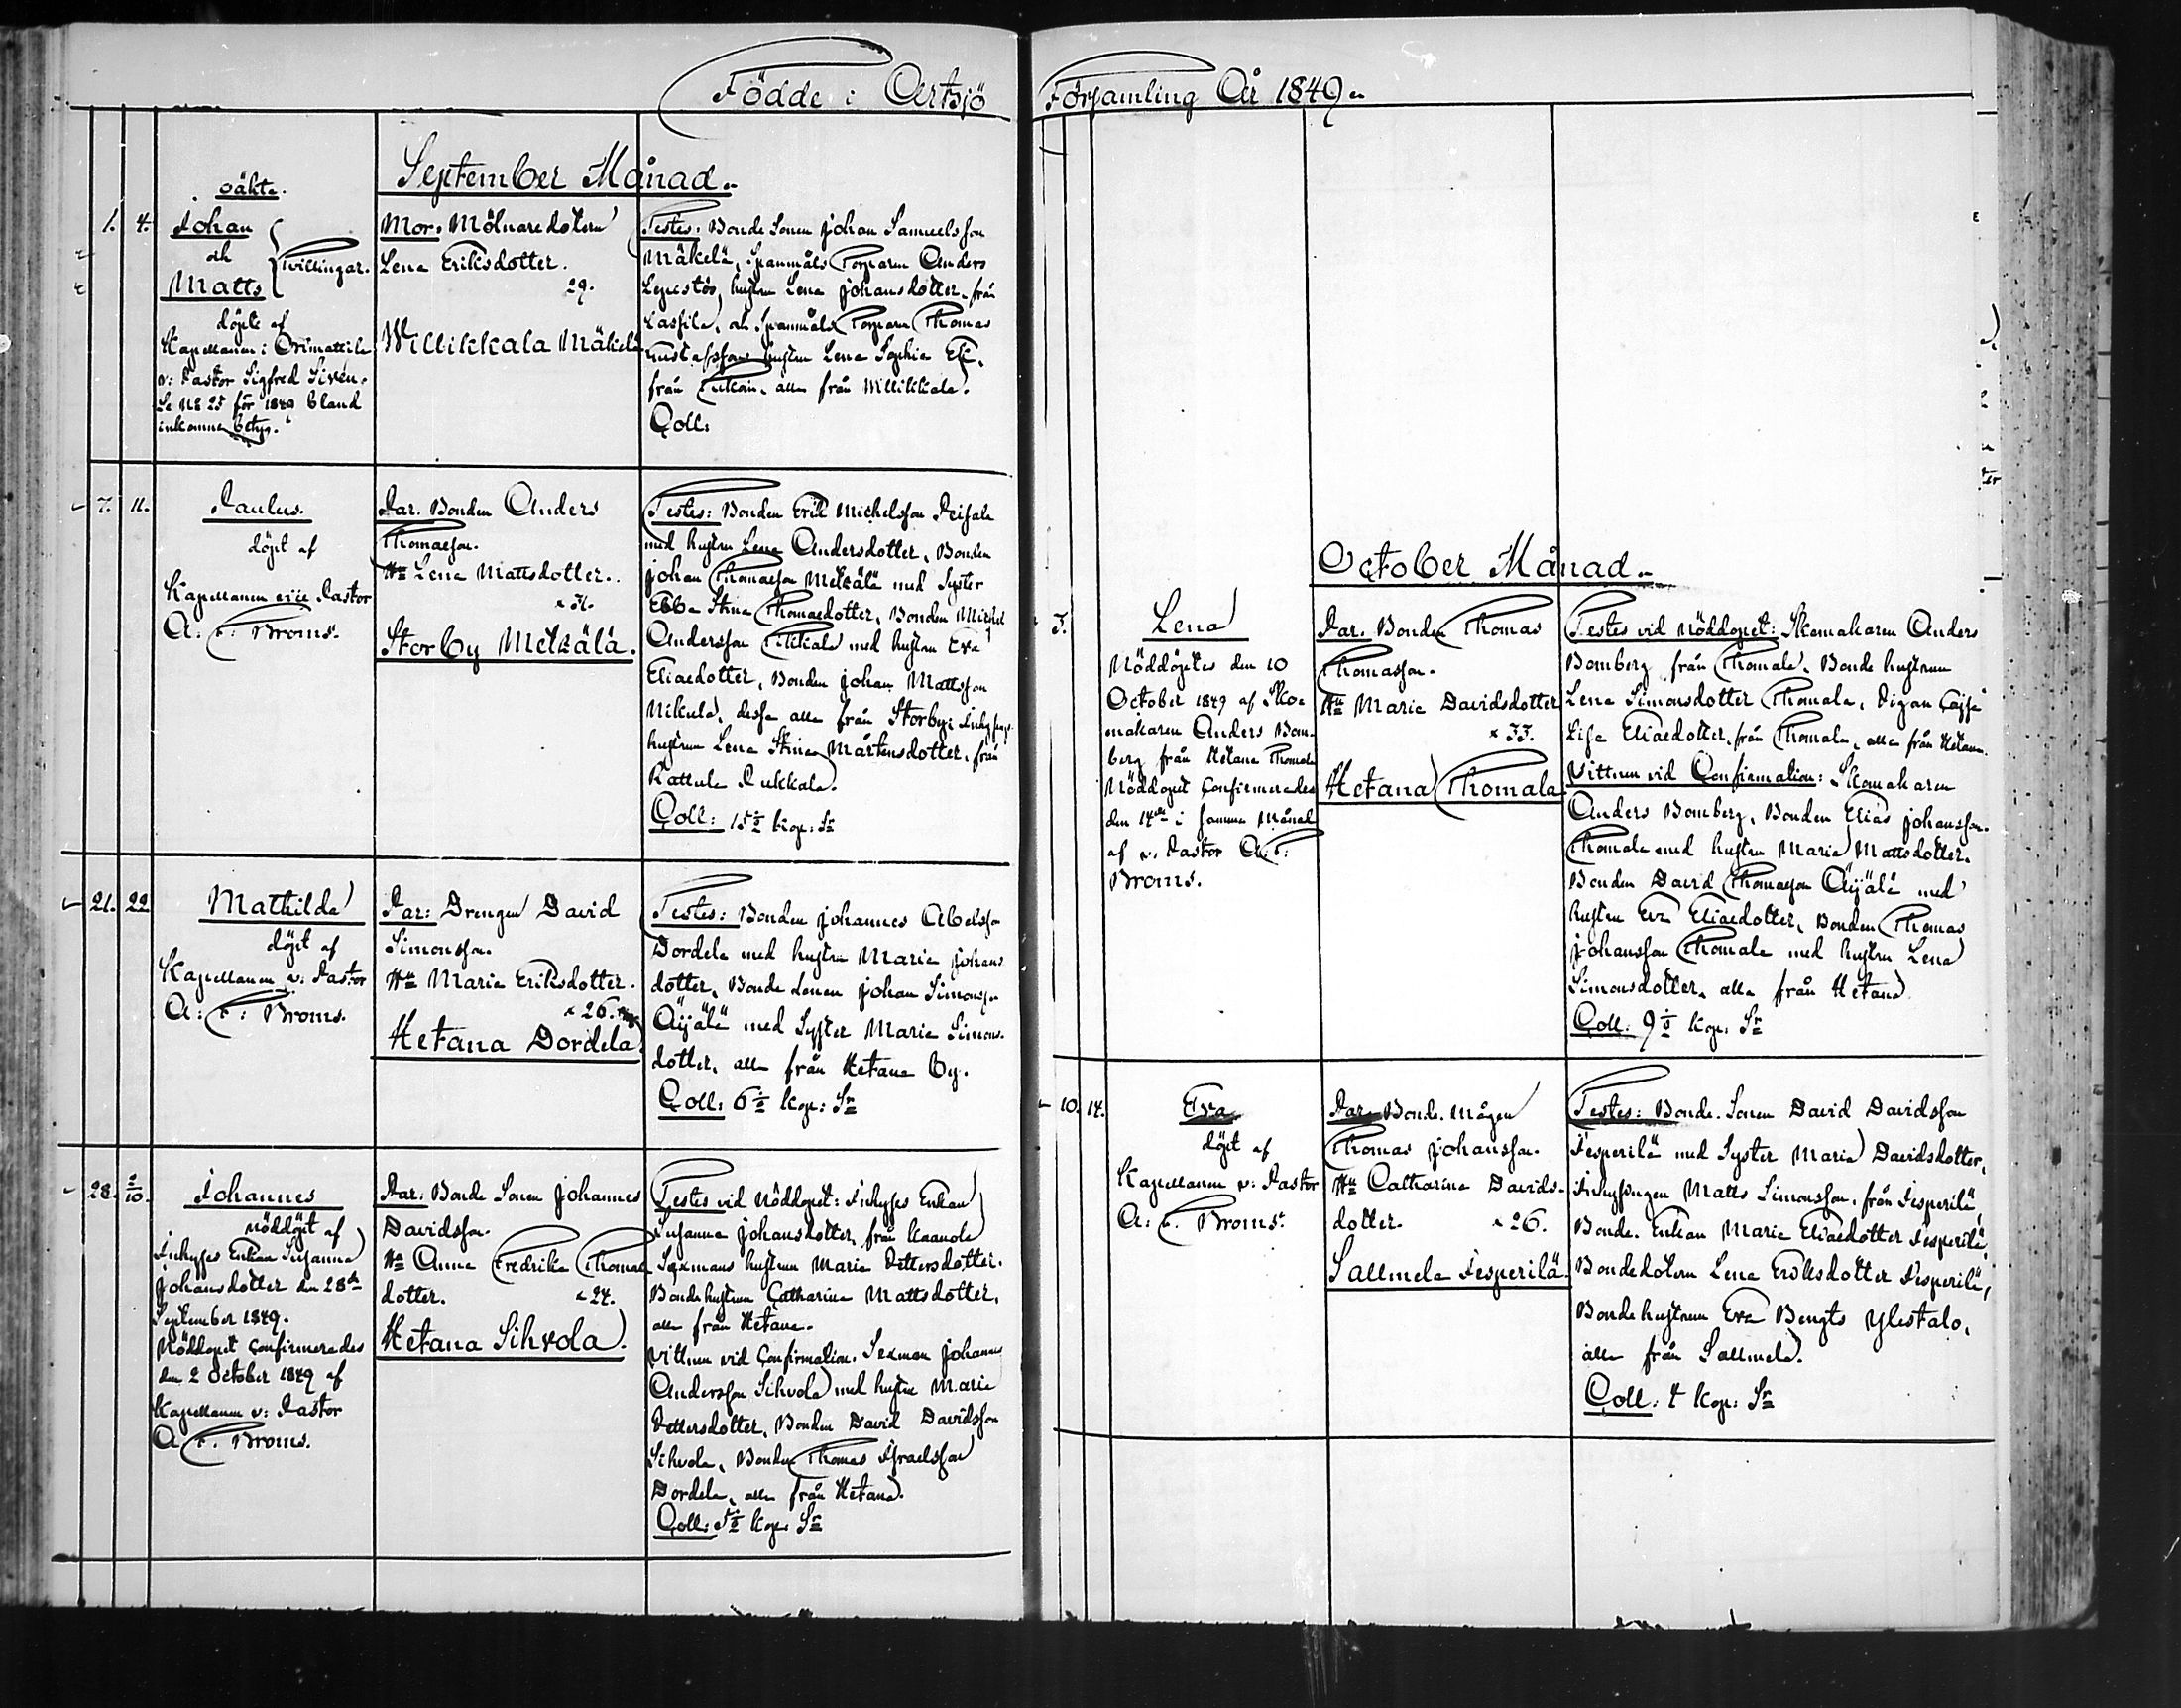 Födde i Artsjö Församling År 1849
September Månad
oäkta.
1. 4. Johan
och
Matts
Tvillingar.
döpte af
Kapellanen i Orimattila
v: Pastor Sigfred Sirén.
Se No 25 för 1849 bland
inkomna betyg.
Mor: Mölnaredotern
Lena Eriksdotter.
29.
Willikkala Mäkelä
Testes: Bonde Sonen Johan Samuelsson
Mäkelä, Spanmåls Torparen Anders
hustrun Lena Johansdotter från
och Spanmåls Torparen Thomas
Gustafssons hustru Lena Sophia
från alla från Willikkala.
Coll:
7. 11. Paulus.
döpt af
Kapellanen vice Pastor
A: F: Broms.
Par. Bonden Anders
Thomasson.
Hu Lena Mattsdotter.
Storby Metsälä.
Testes: Bonden Erik Michelsson
med hustru Lena Andersdotter, Bonden
Johan Thomasson Metsälä med Syster
Ebba Stina Thomaedotter, Bonden Michel
Andersson med hustru Eva
Eliaedotter, Bonden Johan Mattsson
Nikula, dessa alla från Storby;
hustrun Lena Stina Mårtensdotter, från
Rattula Pukkala.
Coll: 15 1/2 kop: Sr
21. 22 Mathilda
döpt af
Kapellanen v: Pastor
A: F: Broms.
Par: Drengen David
Simonsson.
Hu Maria Eriksdotter.
26.
Hetana Dordela
Testes: Bonden Johannes Abelsson
Dordela med hustru Maria Johans
dotter, Bonde Sonen Johan Simonsson
Äijälä med Syster Maria Simons-
dotter, alla från Hetana by.
Coll: 6 1/2 kop: Sr
28. 2/10. Johannes
nöddöpt af
Inhyses Enkan Susanna
Johansdotter den 28de
September 1849.
Nöddopet Confirmerades
den 2 October 1849 af
Kapellanen v: Pastor
A. F. Broms.
Par: Bonde Sonen Johannes
Davidsson.
Hu Anna Fredrika Thomae
dotter. 24.
Hetana Sihvola.
Testes vid Nöddopet: Inhyses Enkan
Susanna Johansdotter, från
Sexmans hustrun Maria Pettersdotter.
Bondehustrun Catharina Mattsdotter,
alla från Hetana.
Vittnen vid Confirmation. Sexman Johannes
Andersson Sihvola med hustru Maria
Pettersdotter, Bonden David Davidsson
Sihvola, Bonden Thomas Israelsson
Dordela, alla från Hetana.
Coll: 5 1/2 kop. Sr
October Månad
3. Lena
Nöddöptes den 10
October 1849 af Sko-
makaren Anders Bom-
berg från Hetana Thomala
Nöddopet Confirmerades
den 14de i samma Månad
af v. Pastor A: F:
Broms.
Par. Bonden Thomas
Thomasson.
Hu Maria Davidsdotter
33.
Hetana Thomala
Testes vid Nöddopet: Skomakaren Anders
Bomberg från Thomala, Bonde hustrun
Lena Simonsdotter Thomala, Pigan Cajsa
Lisa Eliaedotter, från Thomala, alla från Hetana.
Vittnen vid Confirmation: Skomakaren
Anders Bomberg, Bonden Elias Johansson
Thomala med hustru Maria Mattsdotter.
Bonden David Thomasson Äijälä med
hustru Eva Eliaedotter, Bonden Thomas
Johansson Thomala med hustru Lena
Simonsdotter, alla från Hetana
Coll. 9 1/2 kop. Sr
10. 14. Eva
döpt af
Kapellanen v: Pastor
A: F. Broms.
Par. Bonde. Mågen
Thomas Johansson.
Hu Catharina Davids-
dotter. 26.
Sallmela Iesperilä
Testes: Bonde. Sonen David Davidsson
Iesperilä med Syster Maria Davidsdotter,
Inhysingen Matts Simonsson, från Iesperilä,
Bonde. Enkan Maria Eliaedotter Iesperilä,
Bondedotern Lena Eriksdotter Iesperilä,
Bondehustrun Eva Bengts Ylestalo,
alla från Sallmela.
Coll: 4 kop: Sr